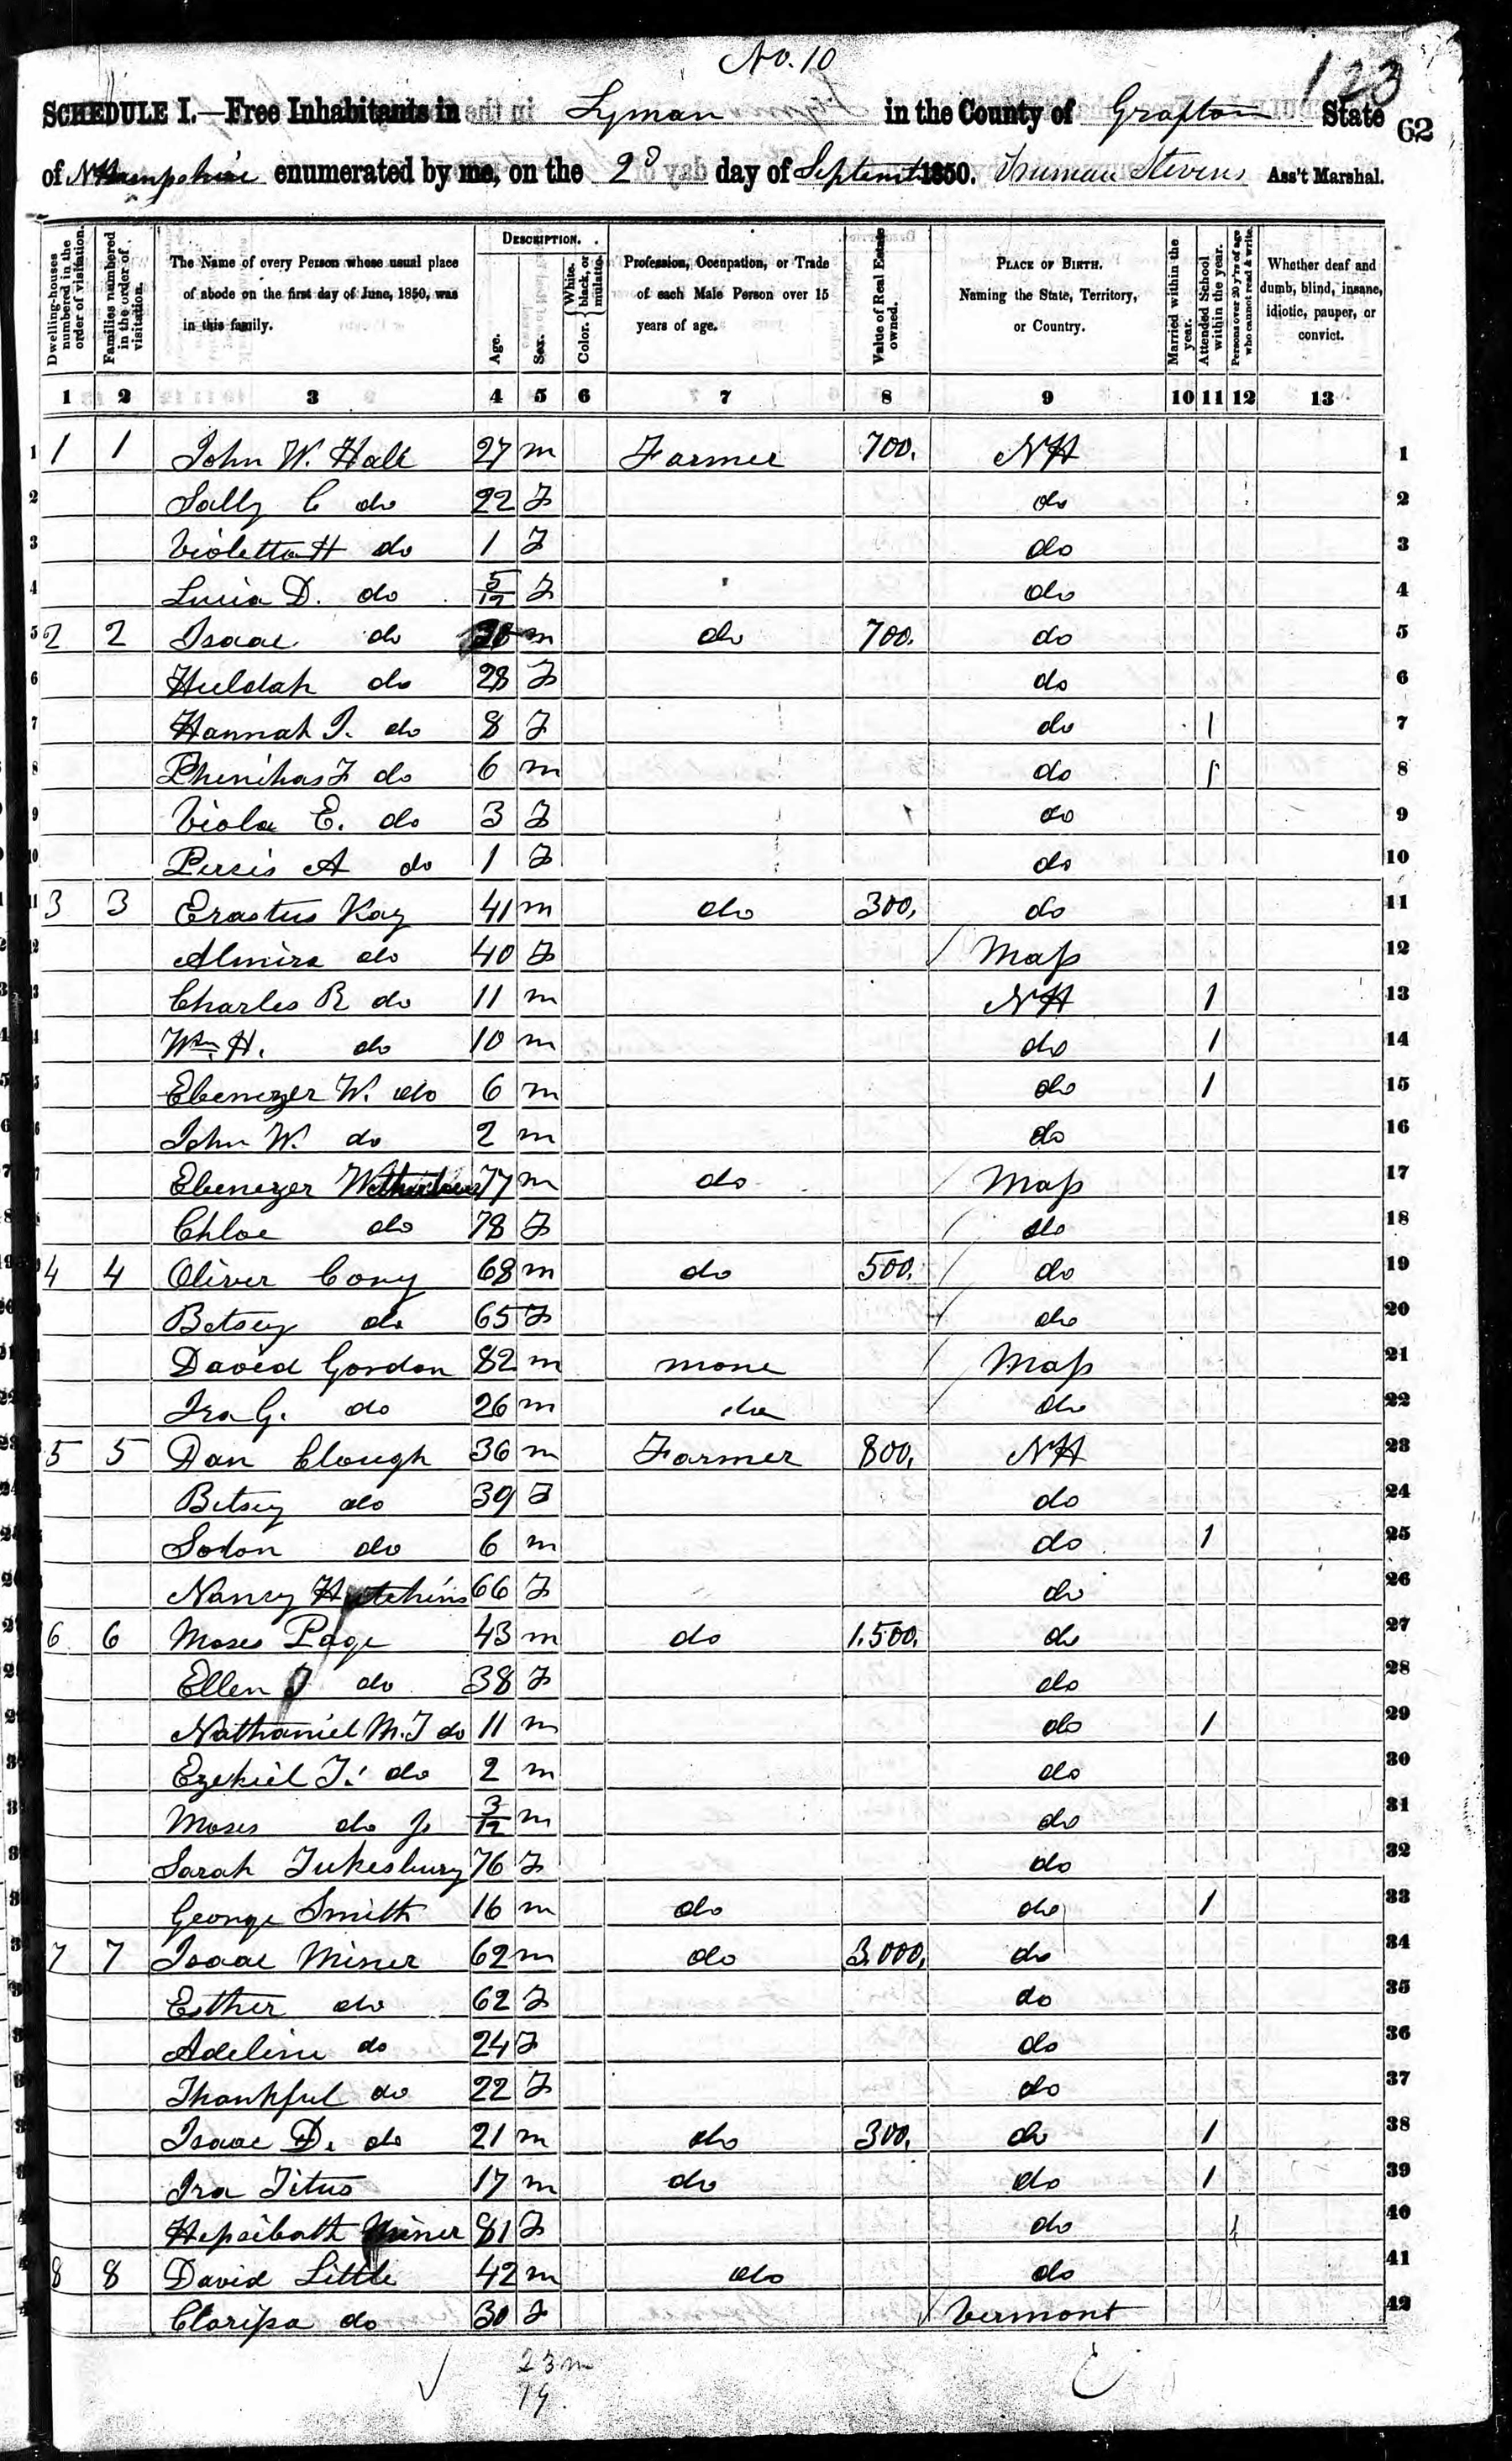 No. 10
123
SCHEDULE I.—Free Inhabitants in Lyman in the County of Grafton State 62
of N Hampshire enumerated by me, on the 2d day of Septemt 1850. Truman Stevens Ass't Marshal.
Dwelling-houses numbered in the order of visitation.
Families numbered in the order of visitation.
The Name of every Person whose usual place of abode on the first day of June, 1850, was in this family.
DESCRIPTION.
Age.
Sex.
Color. { White, black, or mulatto.
Profession, Occupation, or Trade of each Male Person over 15 years of age.
Value of Real Estate owned.
PLACE OF BIRTH. Naming the State, Territory, or Country.
Married within the year.
Attended School within the year.
Persons over 20 y'rs of age who cannot read & write.
Whether deaf and dumb, blind, insane, idiotic, pauper, or convict.
1 2 3 4 5 6 7 8 9 10 11 12 13
1 1 1 John W. Hall 27 m Farmer 700. NH 1
2 Sally C do 22 F do 2
3 Violetta H do 1 F do 3
4 Lucia D. do 5/12 F do 4
5 2 2 Isaac do m do 700. do 5
6 Huldah do 28 F do 6
7 Hannah J. do 8 F do 1 7
8 Phinihas F do 6 m do 1 8
9 Viola E. do 3 F do 9
10 Persis A do 1 F do 10
11 3 3 Erastus Kay 41 m do 300. do 11
12 Almira do 40 F Mass 12
13 Charles R do 11 m NH 1 13
14 Wm. H. do 10 m do 1 14
15 Ebenezer W. do 6 m do 1 15
16 John W. do 2 m do 16
17 Ebenezer 77 m do Mass 17
18 Chloe do 78 F do 18
19 4 4 Oliver Cony 68 m do 500. do 19
20 Betsey do 65 F do 20
21 David Gordon 82 m none Mass 21
22 Ira G. do 26 m do do 22
23 5 5 Dan Clough 36 m Farmer 800. NH 23
24 Betsey do 39 F do 24
25 Solon do 6 m do 1 25
26 Nancy Hutchins 66 F do 26
27 6 6 Moses Page 43 m do 1.500. do 27
28 Ellen J do 38 F do 28
29 Nathaniel M. T do 11 m do 1 29
30 Ezekiel T. do 2 m do 30
31 Moses do Jr 3/12 m do 31
32 Sarah Tukesbury 76 F do 32
33 George Smith 16 m do do 1 33
34 7 7 Isaac Miner 62 m do 3.000. do 34
35 Esther do 62 F do 35
36 Adeline do 24 F do 36
37 Thankful do 22 F do 37
38 Isaac D. do 21 m do 300. do 1 38
39 Ira Titus 17 m do do 1 39
40 Hepsibath Miner 81 F do 1 40
41 8 8 David Little 42 m do do 41
42 Clarissa do 30 F Vermont 42
23 m
19